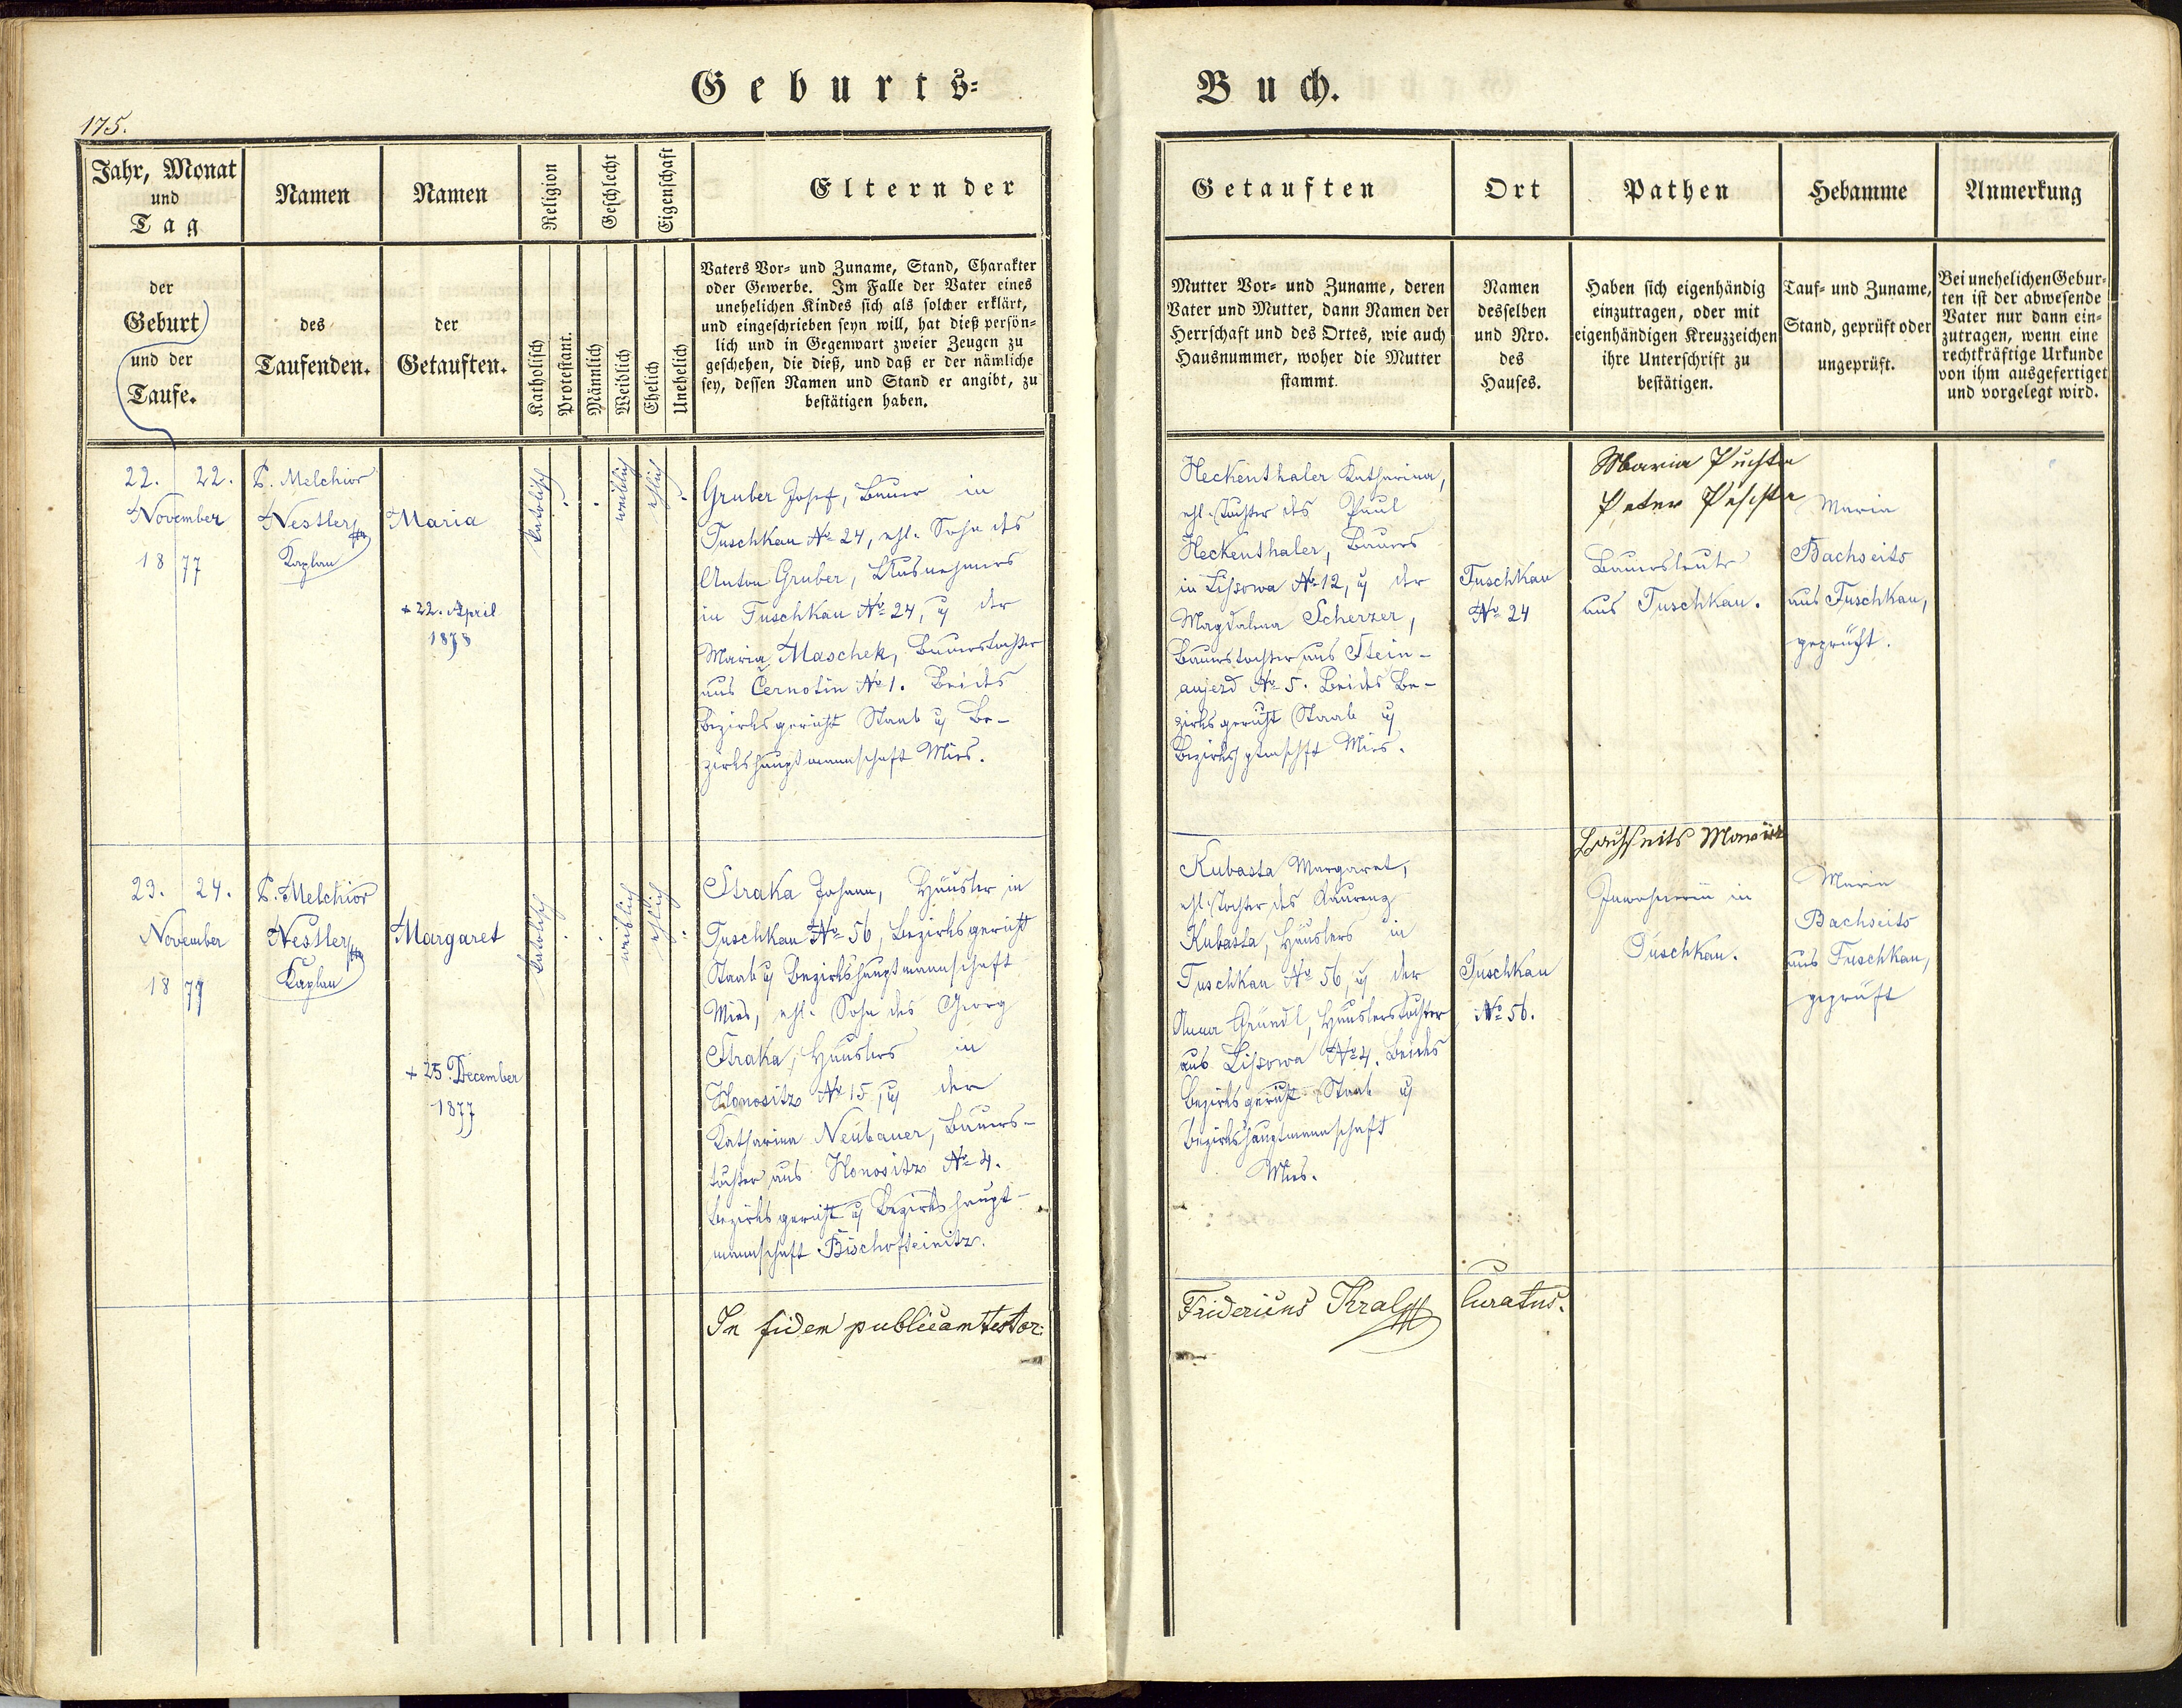 Geburts=
Buch.
175.
Jahr, Monat
und
Tag
Namen
Namen
Religion
Geschlecht
Eigenschaft
Eltern der
der
Geburt
und der
Taufe.
des
Taufenden.
der
Getauften.
Katholisch
Protestant.
Männlich
Weiblich
Ehelich
Unehelich
Vaters Vor- und Zuname, Stand, Charakter
oder Gewerbe. Im Falle der Vater eines
unehelichen Kindes sich als solcher erklärt,
und eingeschrieben seyn will, hat dieß persön-
lich und in Gegenwart zweier Zeugen zu
geschehen, die dieß, und daß er der nämliche
sey, dessen Namen und Stand er angibt, zu
bestätigen haben.
Getauften
Ort
Pathen
Hebamme
Anmerkung
Mutter Vor- und Zuname, deren
Vater und Mutter, dann Namen der
Herrschaft und des Ortes, wie auch
Hausnummer, woher die Mutter
stammt.
Namen
desselben
und Nro.
des
Hauses.
Haben sich eigenhändig
einzutragen, oder mit
eigenhändigen Kreuzzeichen
ihre Unterschrift zu
bestätigen.
Tauf- und Zuname,
Stand, geprüft oder
ungeprüft.
Bei unehelichen Gebur-
ten ist der abwesende
Vater nur dann ein-
zutragen, wenn eine
rechtkräftige Urkunde
von ihm ausgefertiget
und vorgelegt wird.
22. 22.
November
18 77
P. Melchior
Nestler
Kaplan
Maria
+ 22. April
1878
katolisch
weiblich
ehlich
Gruber Josef, Bauer in
Tuschkau No 24, ehl. Sohn des
Anton Gruber, Ausnehmers
in Tuschkau No 24, u der
Maria Maschek, Bauerstochter
aus Černotin No 1. Beides
Bezirksgericht Staab u Be-
zirkshauptmannschaft Mies.
Heckenthaler Katharina,
ehl. Tochter des Paul
Heckenthaler, Bauers
in Lissowa No 12, u der
Magdalena Scherzer,
Bauerstochter aus Stein-
aujezd No 5. Beides Be-
zirksgericht Staab u
Bezirks Mies.
Tuschkau
No 24
Maria
Peter
Bauersleute
aus Tuschkau.
Maria
Bachseits
aus Tuschkau,
geprüft.
23. 24.
November
18 77
P. Melchior
Nestler
Kaplan
Margaret
+ 25. December
1877
katolisch
weiblich
ehlich
Straka Johann, Häusler in
Tuschkau No 56, Bezirksgericht
Staab u Bezirkshauptmannschaft
Mies, ehl. Sohn des Georg
Straka, Häuslers in
Honositz No 15, u der
Katharina Neubauer, Bauers-
tochter aus Honositz No 4.
Bezirksgericht u Bezirkshaupt-
mannschaft Bischofteinitz.
Kubasta Margaret,
ehl. Tochter des Laurenz
Kubasta, Häuslers in
Tuschkau No 56, u der
Anna Gründl, Häuslerstochter
aus Lissowa No 4. Beides
Bezirksgericht Staab u
Bezirkshauptmannschaft
Mies.
Tuschkau
No 56.
Bachseits
Inwohnerin in
Tuschkau.
Maria
Bachseits
aus Tuschkau,
geprüft
In fidem publicam testor:
Fridericus Kral
Curatus.